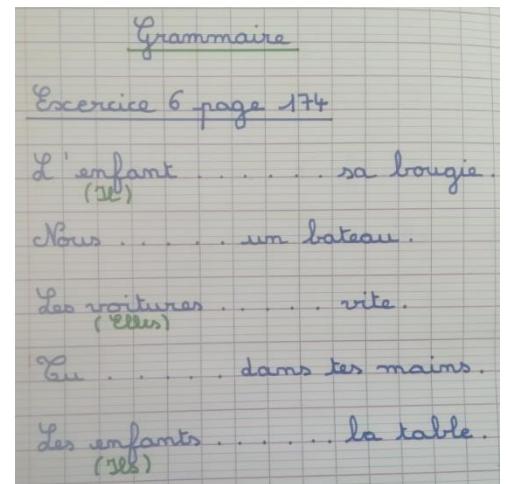 Grammaire
Excercice 6 page 174
L'enfant . . . . . . sa bougie.
(Il)
Nous . . . . . un bateau.
Les voitures . . . . . vite.
(Elles)
Tu . . . . . dans tes mains.
Les enfants . . . . . . la table.
(Ils)